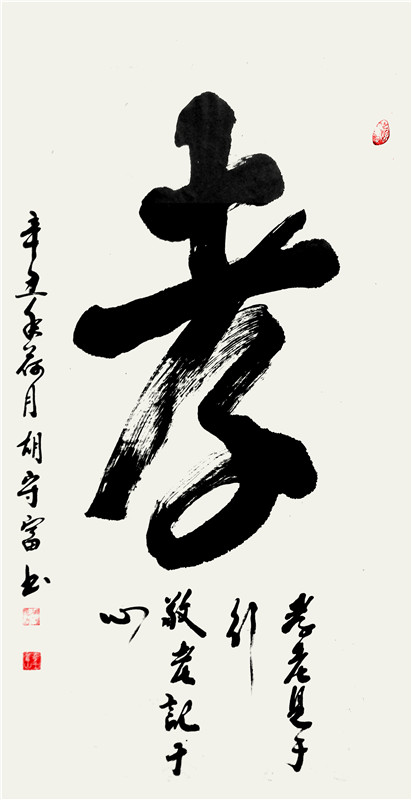 孝
孝老見于
行
敬老記于
心
辛丑年荷月胡守富书